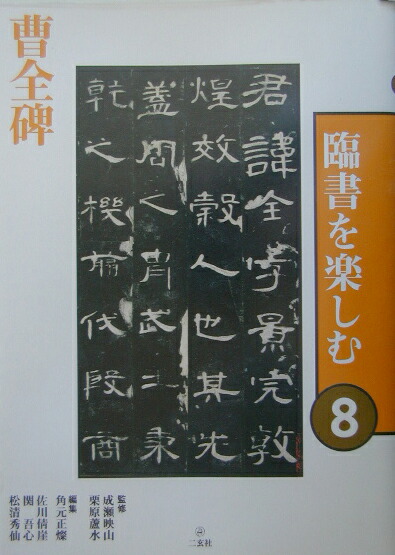 臨書を楽しむ
8
曹全碑
君諱全字景完敦
煌效穀人也其先
蓋周之胄武王秉
乾之機翦伐殷商
監修
成瀬映山
栗原蘆水
編集
角元正燦
佐川倩崖
関吾心
松清秀仙
二玄社